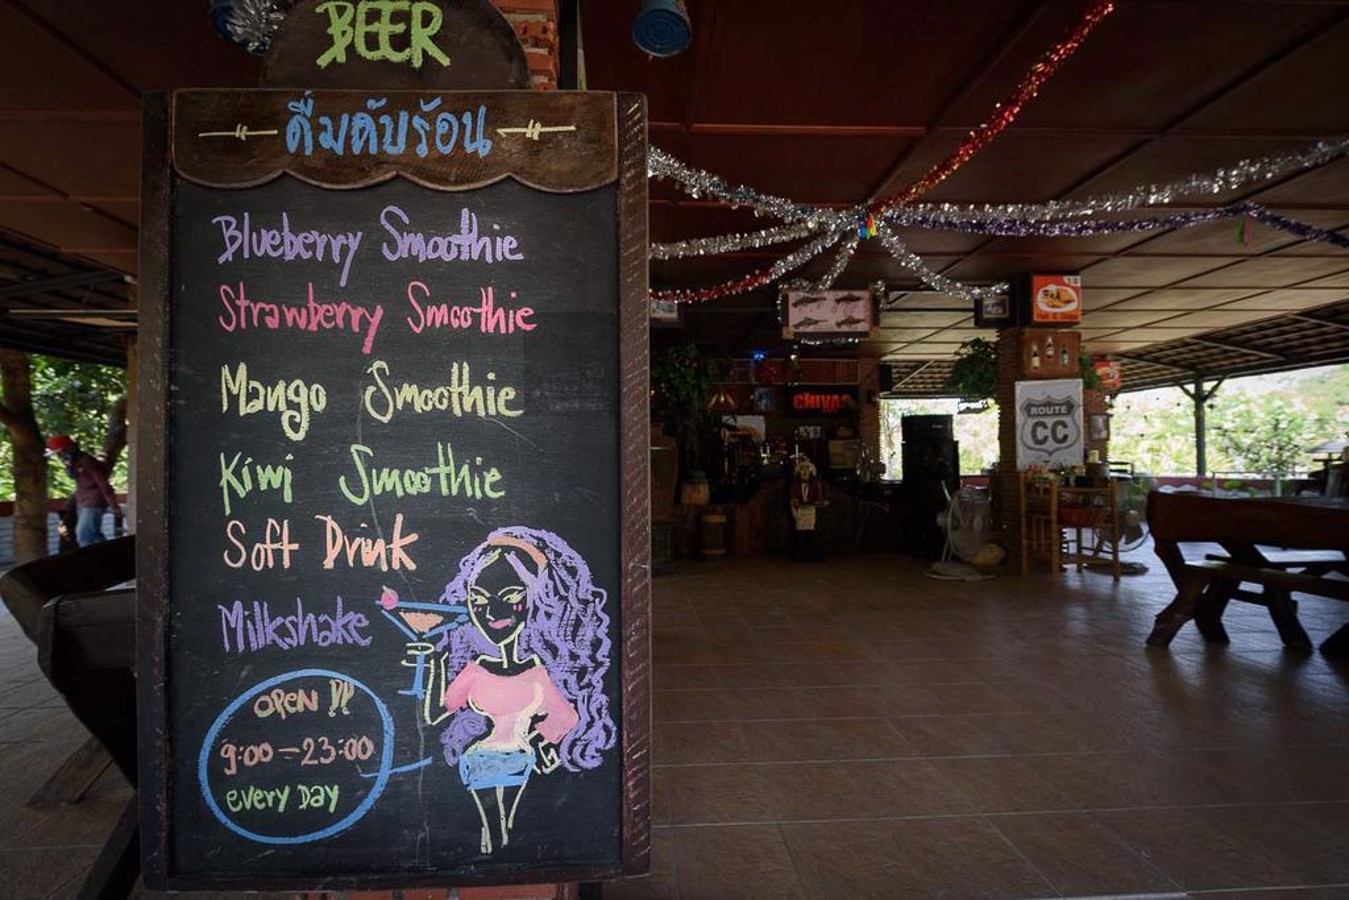 BEER
ดื่มดับร้อน
Blueberry Smoothie
Strawberry Smoothie
Mango Smoothie
Kiwi Smoothie
Soft Drink
Milkshake
OPEN !!
9:00 - 23:00
every Day
CHIVAS
ROUTE
CC